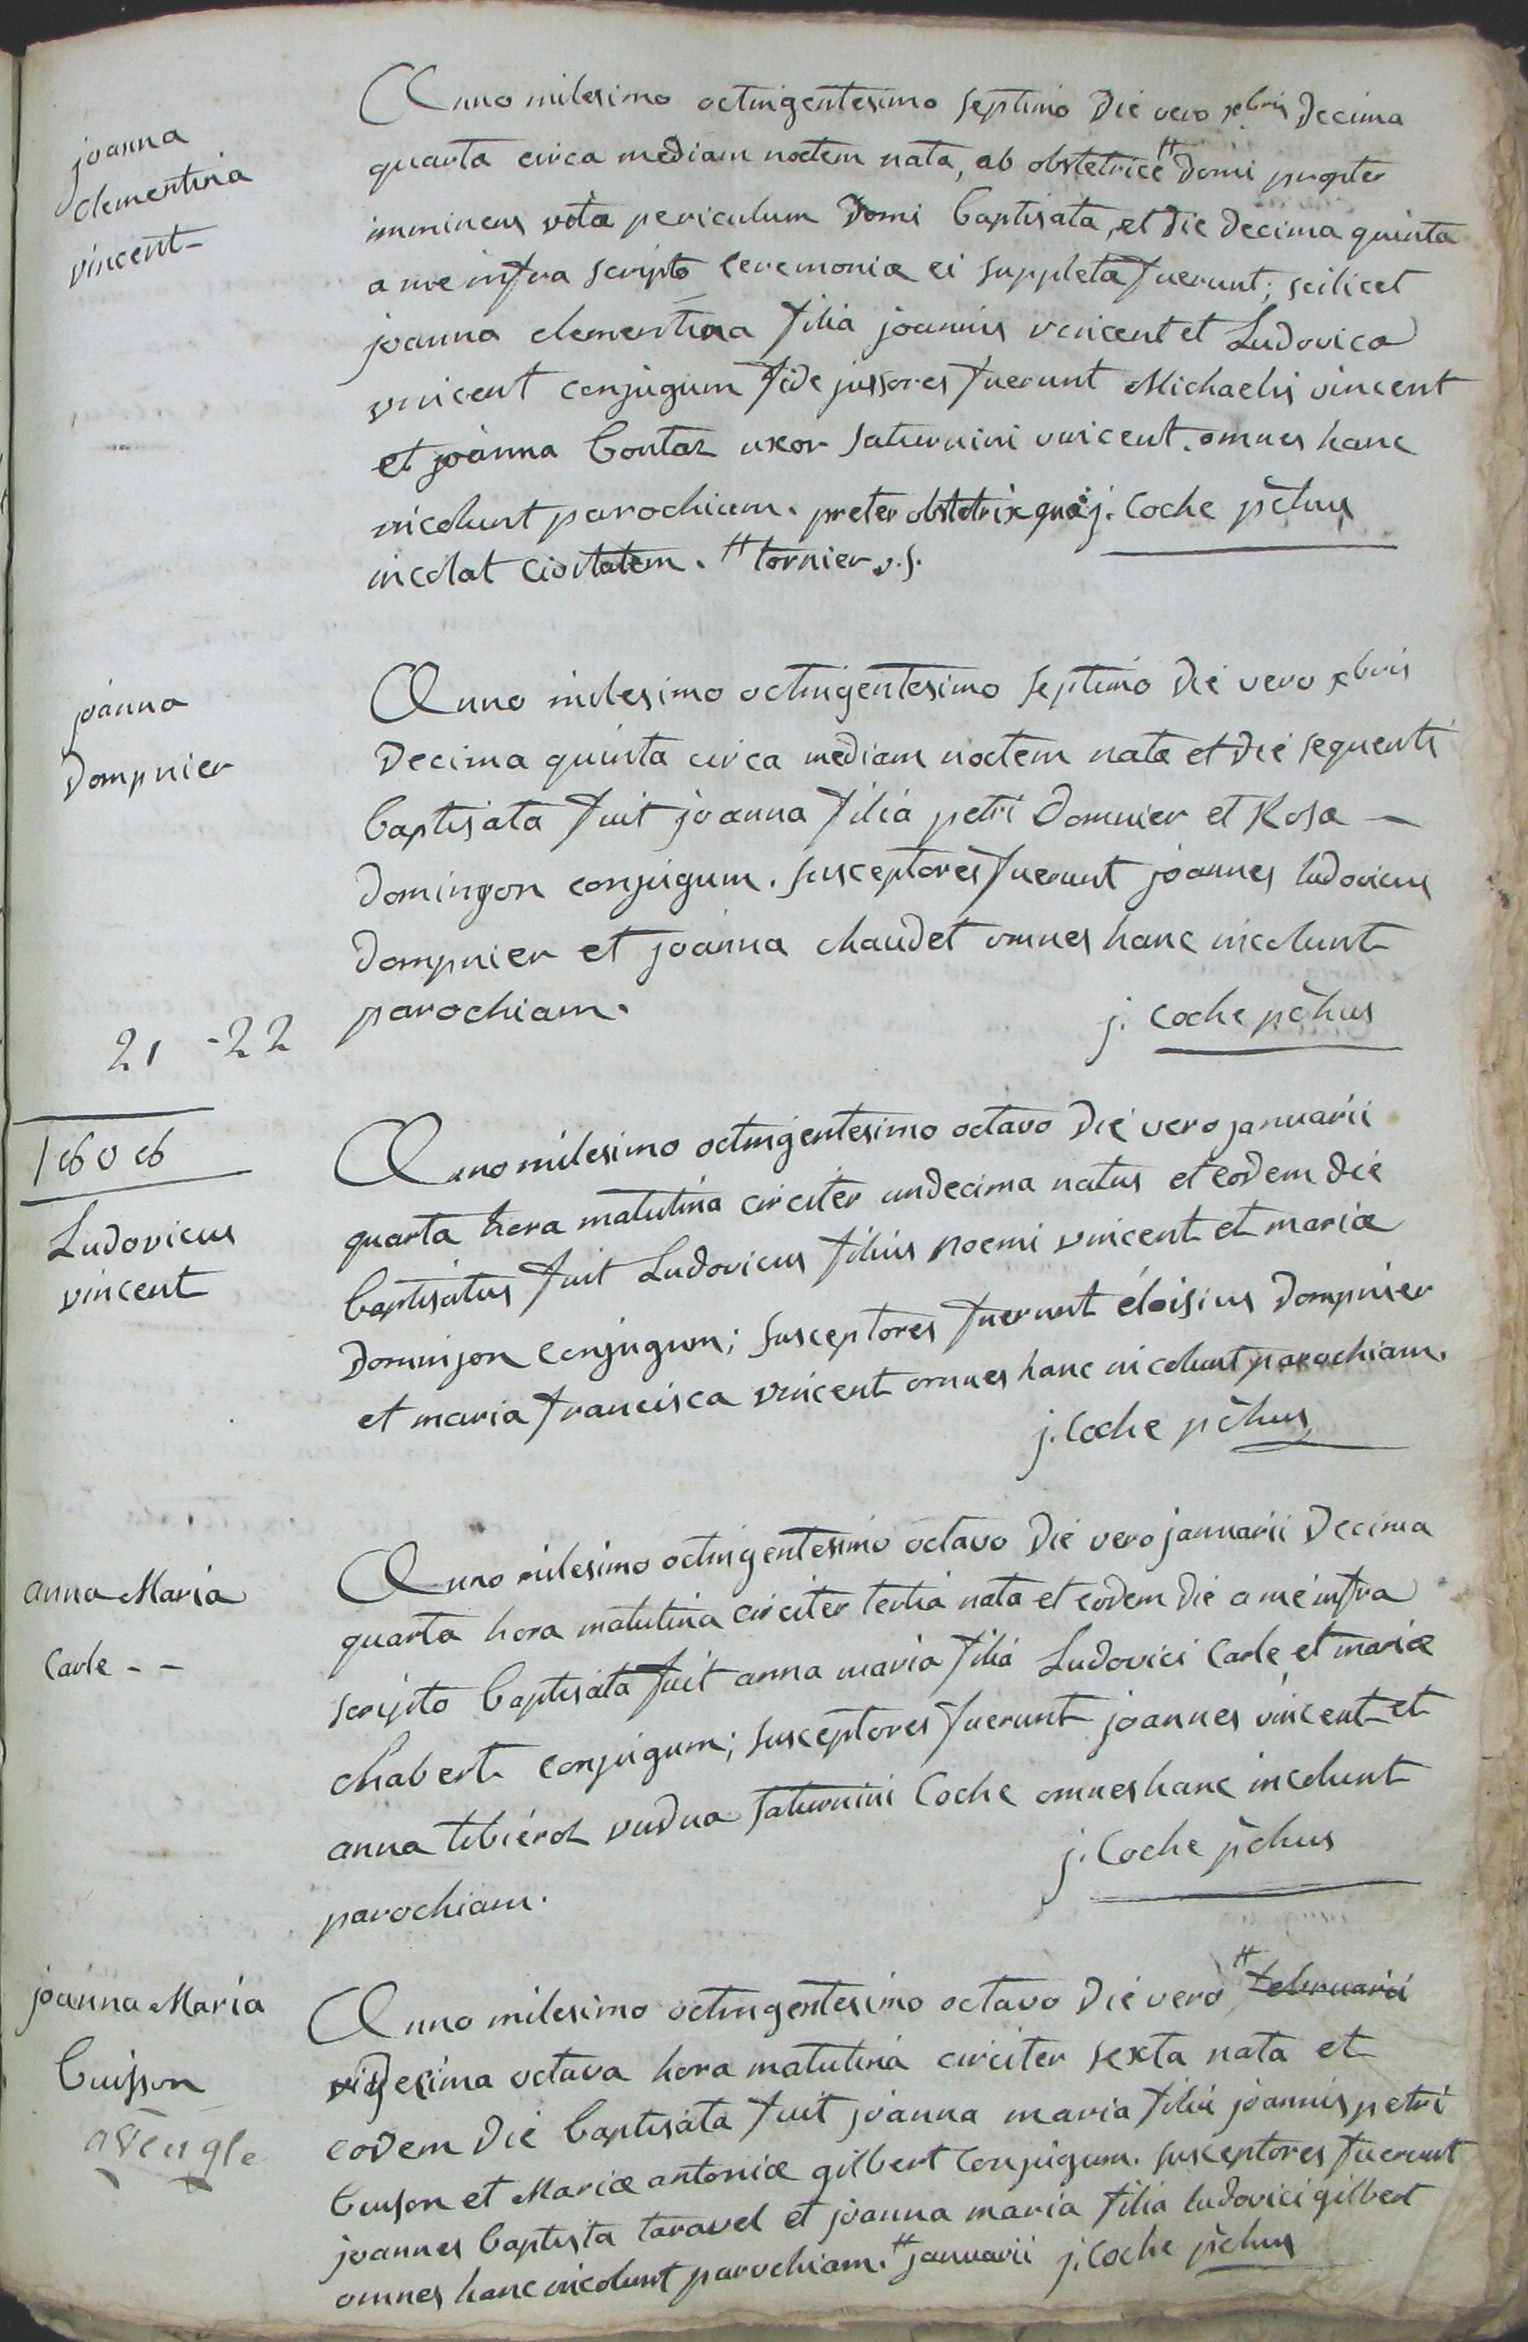 joanna
clementina
vincent
Anno milesimo octingentesimo septimo die vero xbris decima
quarta circa mediam noctem nata, ab obstetrice # domi propter
imminens vitæ periculum domi baptisata, et die decima quinta
a me infra scripto ceremoniæ ei suppletæ fuerunt; scilicet
joanna clementina filia joannis vincent et Ludovica
vincent conjugum fide jussores fuerunt Michaelis vincent
et joanna Contaz uxor saturnini vincent. omnes hanc
incolunt parochiam. preter obstetrix quæ j. Coche pc̄hus
incolat civitatem. # tornier v.s.
joanna
Dompnier
Anno milesimo octingentesimo septimo die vero xbris
decima quinta circa mediam noctem nata et die sequenti
baptisata fuit joanna filia petri Domnier et Rosa -
domingon conjugum. susceptores fuerunt joannes ludovicus
dompnier et joanna chaudet omnes hanc incolunt
parochiam.
j. Coche pc̄hus
21 - 22
1808
Ludovicus
vincent
Anno milesimo octingentesimo octavo die vero januarii
quarta hora matutina circiter undecima natus et eodem die
baptisatus fuit Ludovicus filius noemi vincent et mariæ
Dominjon conjugum; susceptores fuerunt éloisius Dompnier
et maria francisca vincent omnes hanc incolunt parochiam.
j. Coche pc̄hus
anna Maria
Carle - -
Anno milesimo octingentesimo octavo die vero januarii decima
quarta hora matutina circiter tertia nata et eodem die a me infra
scripto baptisata fuit anna maria filia Ludovici Carle et mariæ
chabert conjugum; susceptores fuerunt joannes vincent et
anna tibiéroz vudua saturnini Coche omnes hanc incolunt
parochiam.
j. Coche pc̄hus
joanna Maria
buisson
aveugle
Anno milesimo octingentesimo octavo die vero # februarii
vigesima octava hora matutina circiter sexta nata et
eodem die baptisata fuit joanna maria filia joannis petri
buison et Mariæ antoniæ gilbert conjugum. susceptores fuerunt
joannes baptista taravel et joanna maria filia ludovici gilbert
omnes hanc incolunt parochiam. # januarii j. Coche pc̄hus